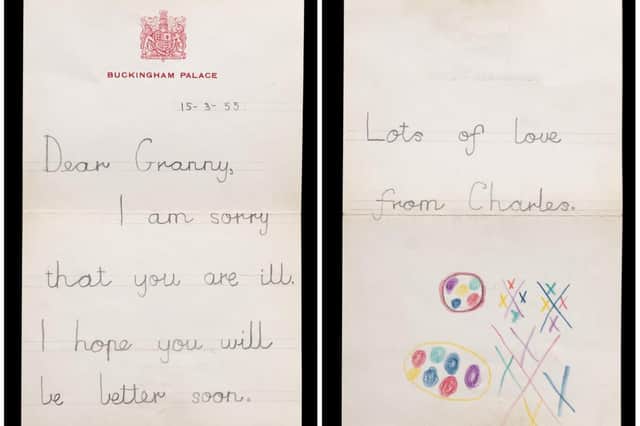 BUCKINGHAM PALACE
15-3-55.
Dear Granny,
I am sorry
that you are ill.
I hope you will
be better soon.
Lots of love
from Charles.